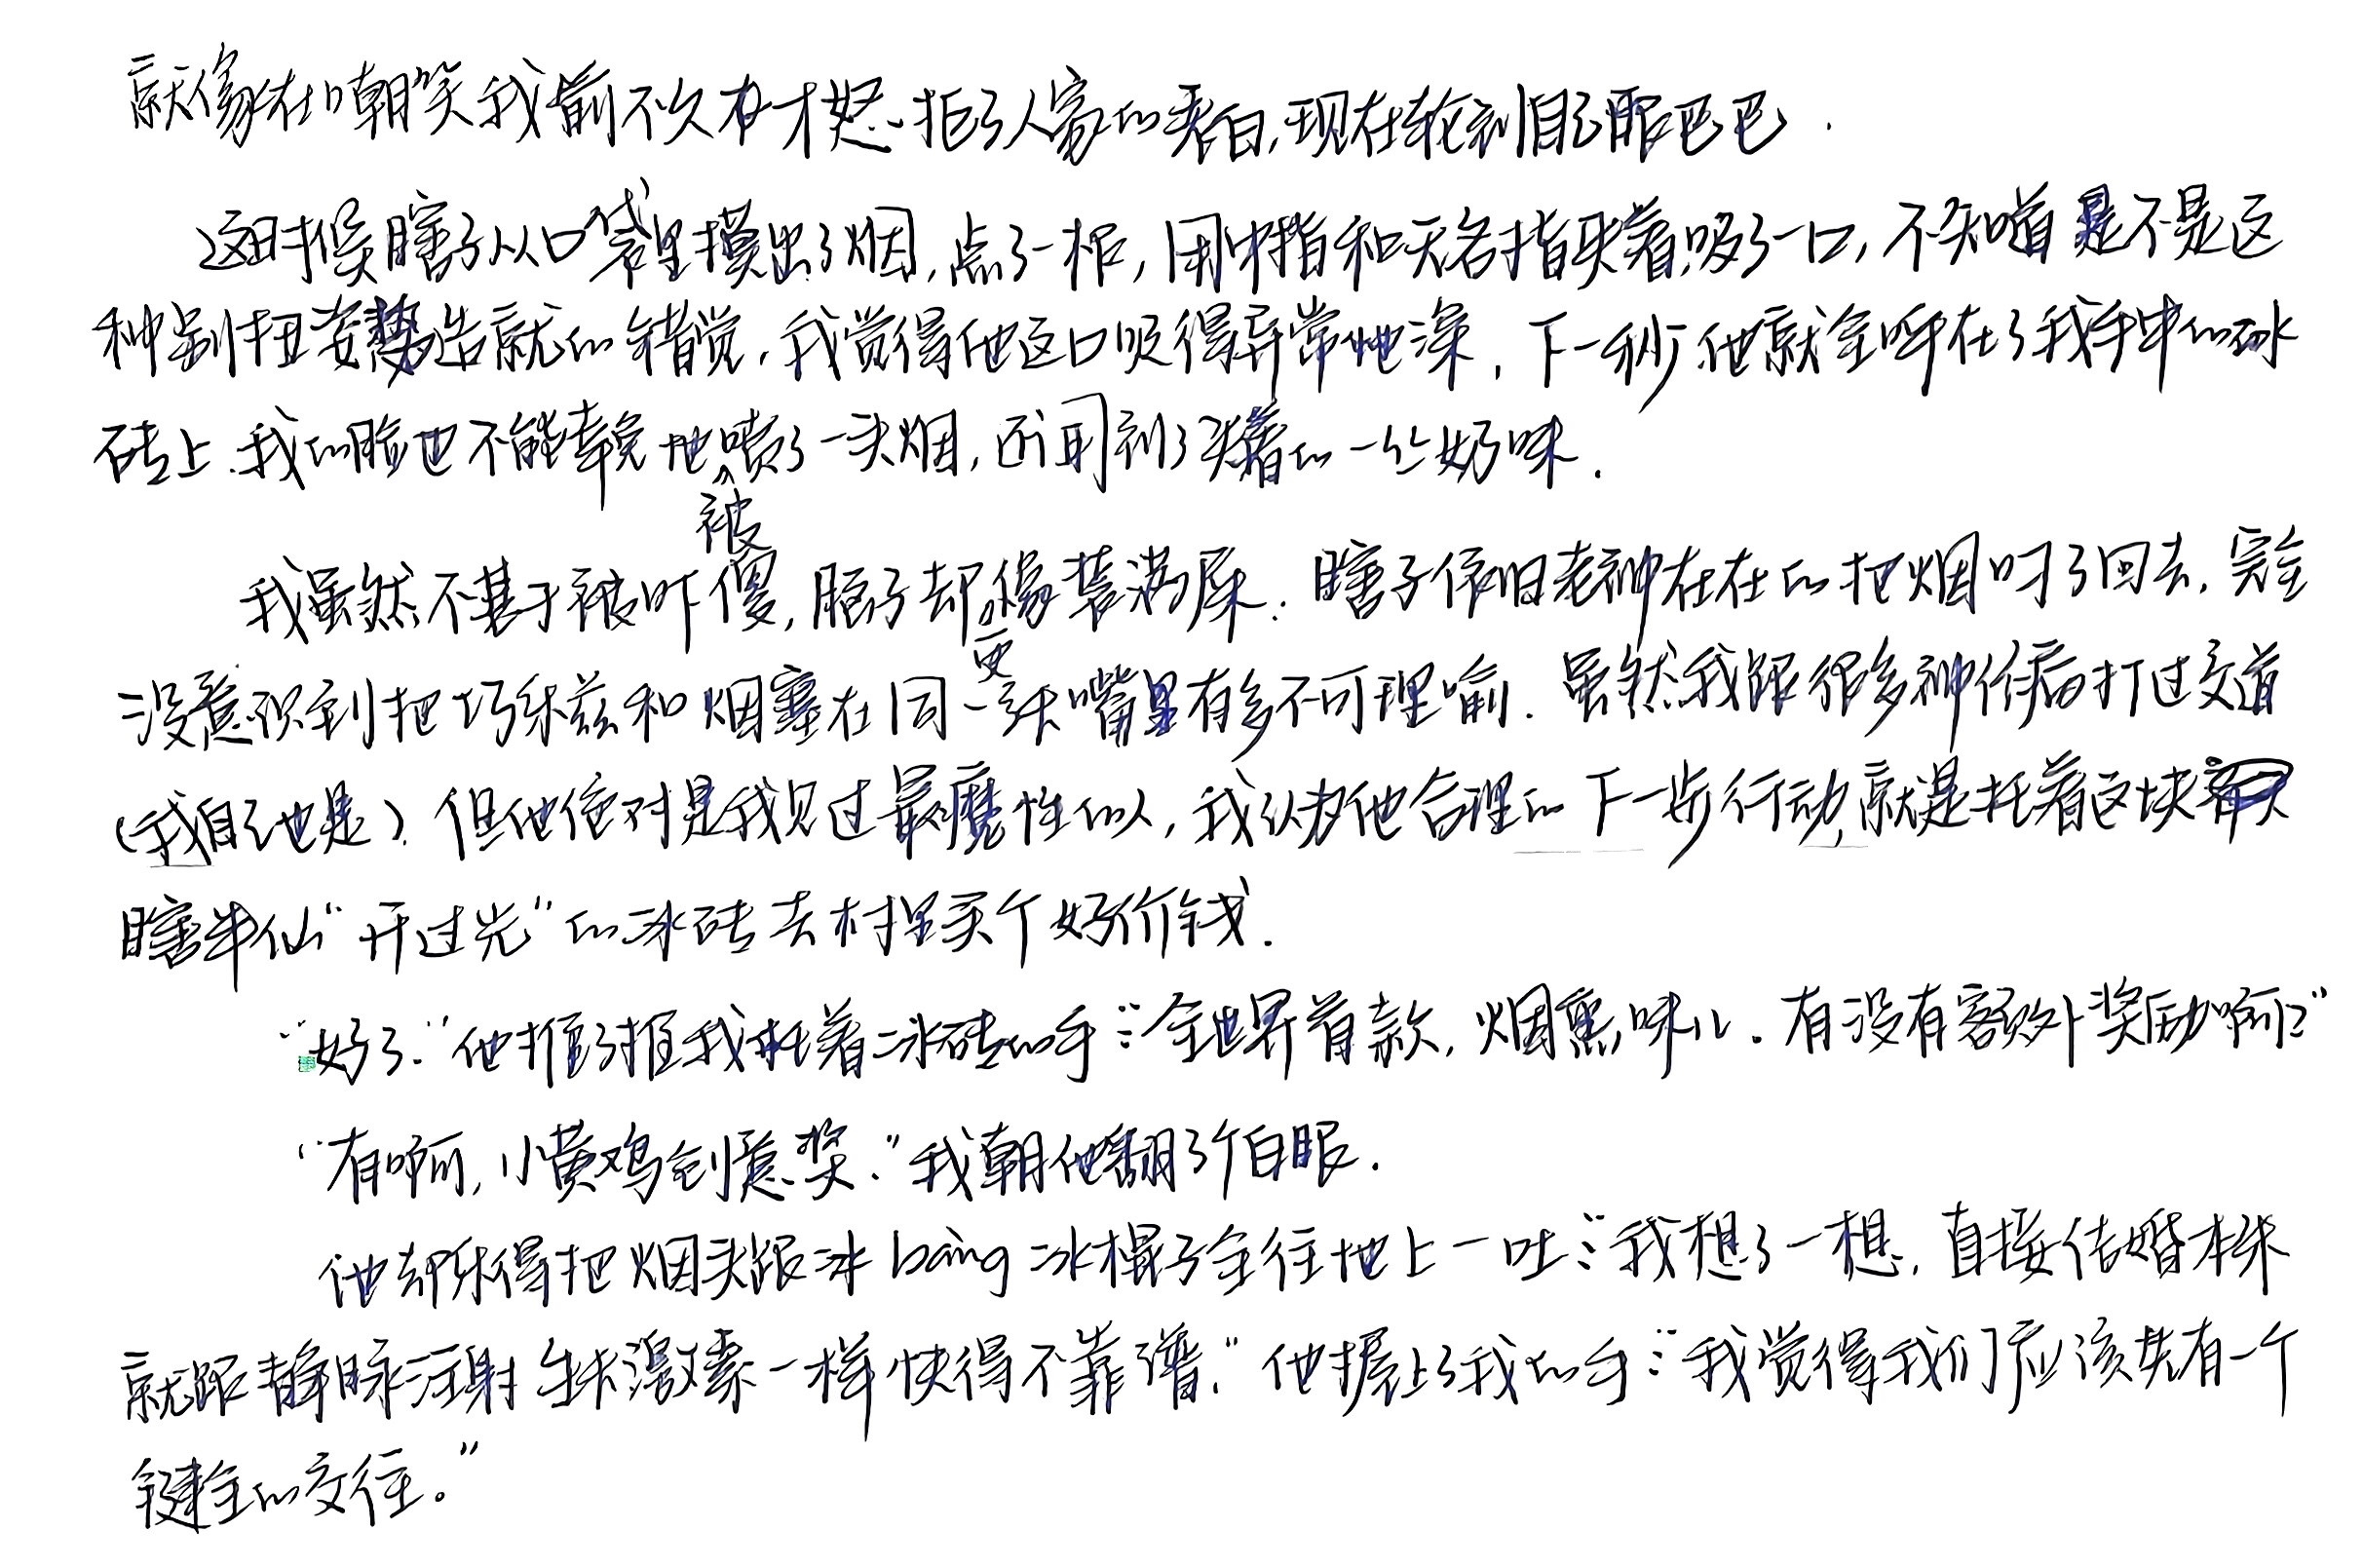 就像在嘲笑我前不久才怒拒了人家的表白,现在轮到自己眼巴巴.
这时候瞎子从口袋里摸出了烟,点了一根,用中指和无名指夹着,吸了一口,不知道是不是这
种别扭姿势造就的错觉,我觉得他这口吸得异常地深,下一秒他就全呼在了我手中的冰
砖上.我的脸也不能幸免地被喷了一头烟,还闻到了夹着的一丝奶味.
我虽然不甚于被吓傻,脑子却更像装满屎.瞎子依旧老神在在的把烟叼了回去,完全
没意识到把巧乐兹和烟塞在同一张嘴里有多不可理喻.虽然我跟很多神经病打过交道
(我自己也是).但他绝对是我见过最魔性的人,我认为他合理的下一步行动,就是托着这块
瞎半仙“开过光”的冰砖去村里买个好价钱.
“好了.”他推了推我托着冰砖的手:“全世界首款,烟熏味儿.有没有额外奖励啊?”
“有啊,小黄鸡创意奖.”我朝他翻了个白眼.
他却乐得把烟头跟冰bàng冰棍子全往地上一吐:“我想了一想,直接结婚本来
就跟静脉注射生长激素一样快得不靠谱.”他握上了我的手:“我觉得我们应该先有一个
健全的交往。”